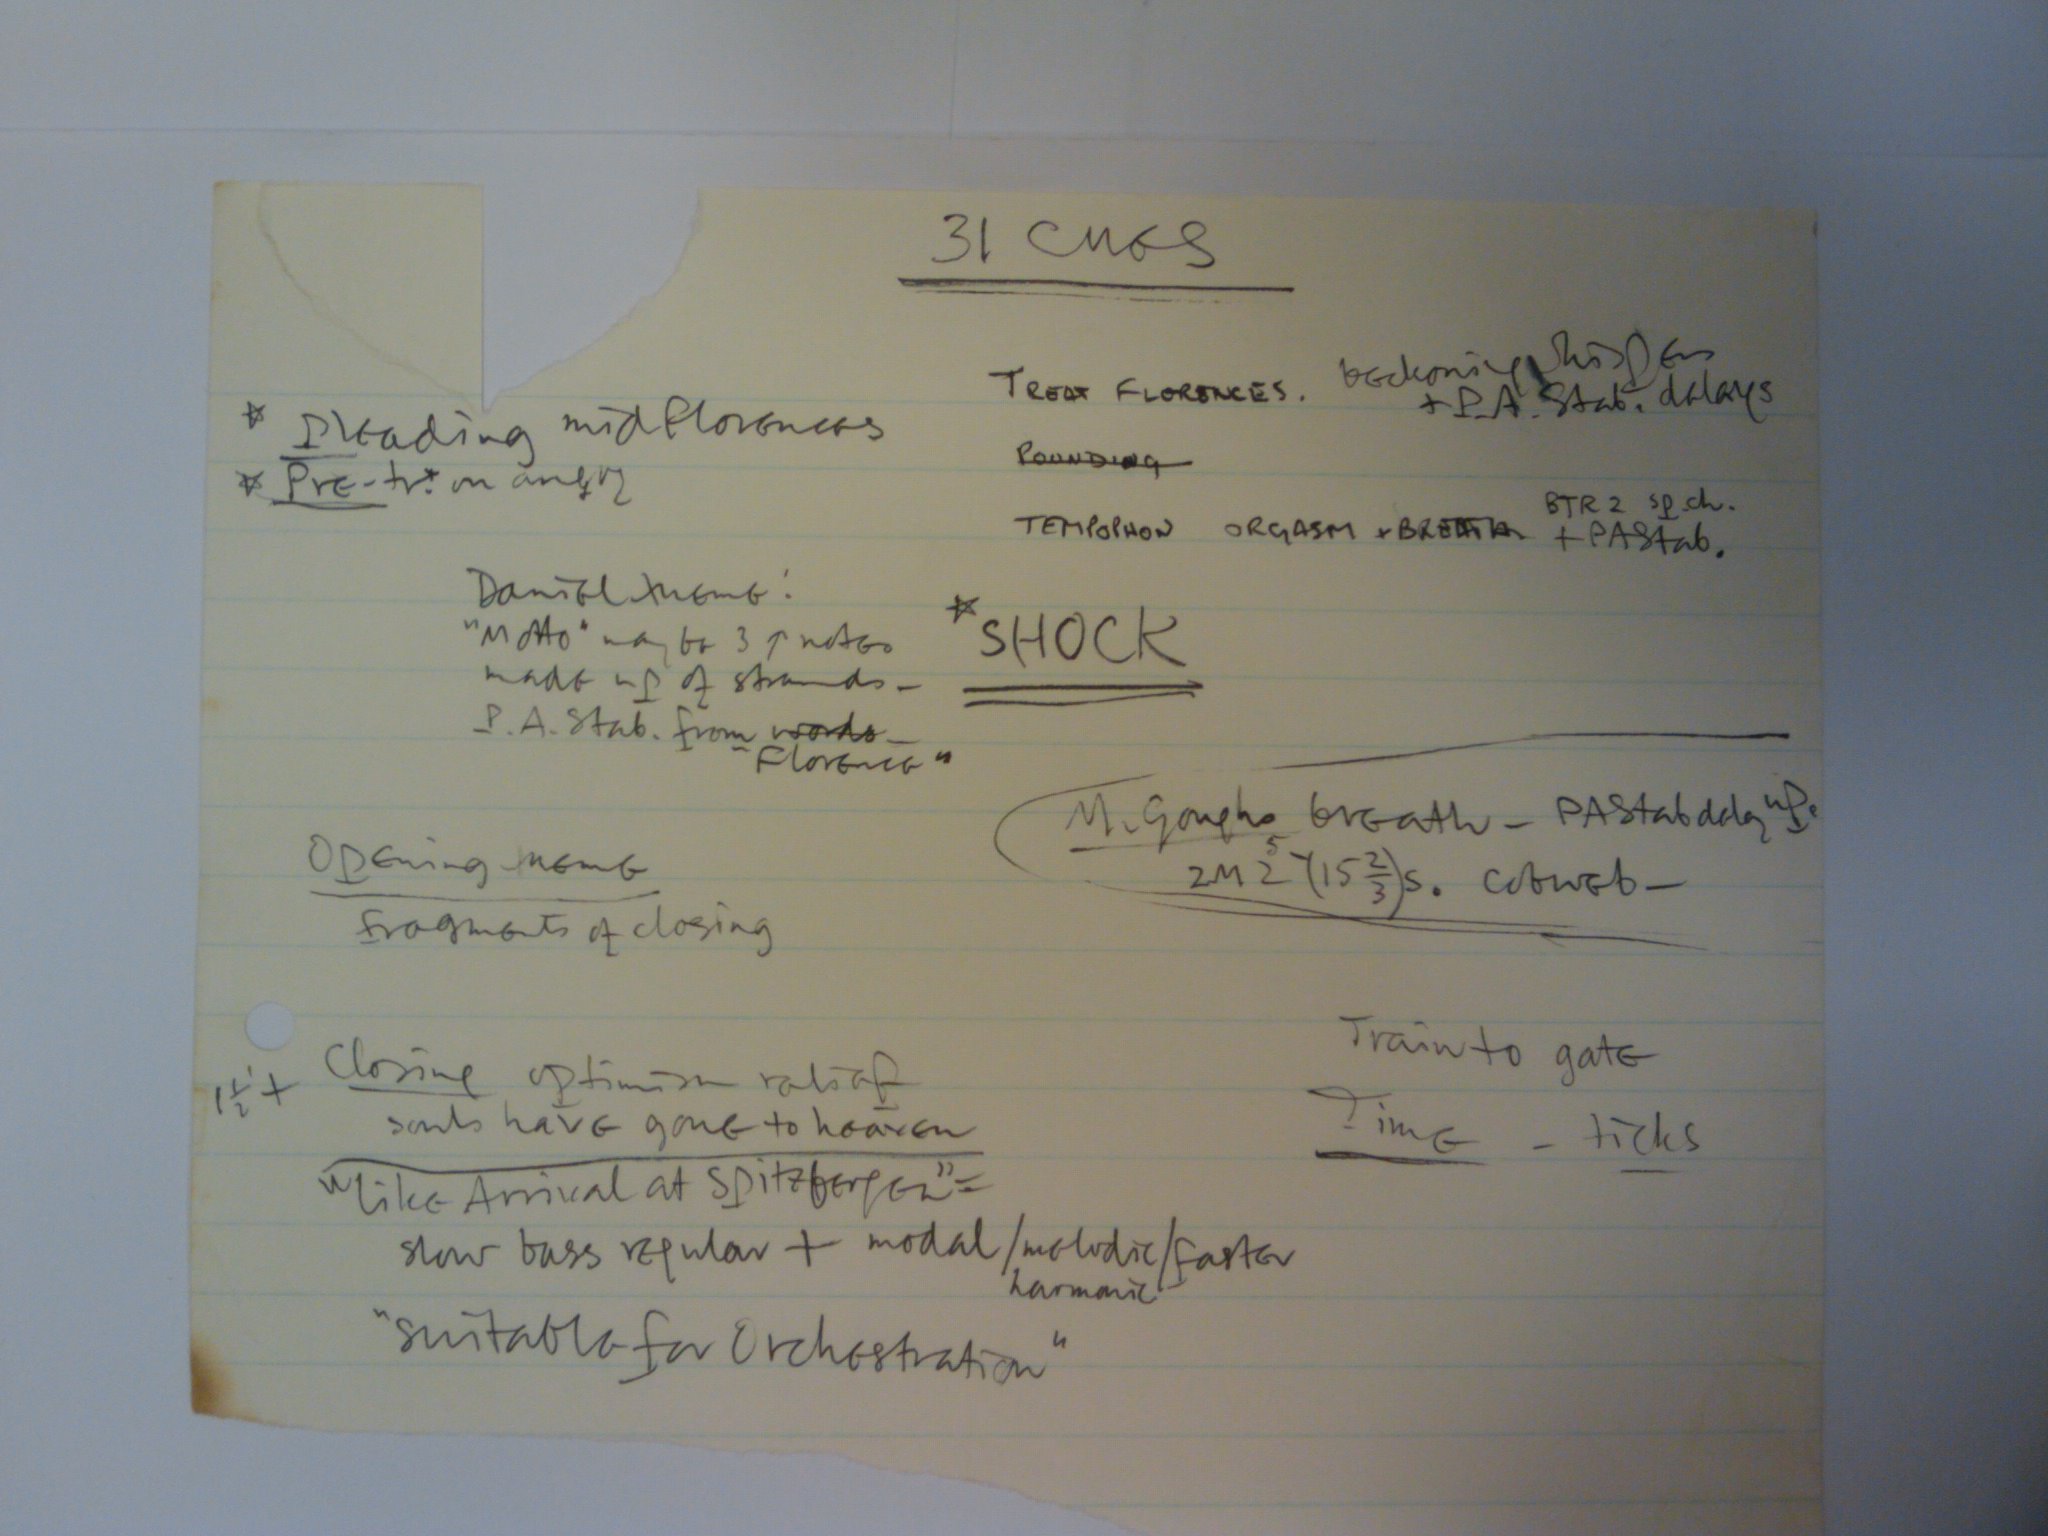 31 CUES
TREAT FLORENCES. beckoning whispers
+ P.A. Stab. delays
* Pleading mid Florences
POUNDING
* Pre- angry
BTR 2 sp. ch.
TEMPOPHON ORGASM + BREATH + PAStab.
Daniel theme:
"Motto" maybe 3 ↑ notes
made up of strands -
P.A. Stab. from words -
"Florence"
* SHOCK
M. Goughs breath - PAStab delay up.
2M 2 5 (15 2/3)s. cobweb -
Opening theme
fragments of closing
Train to gate
1½' + Closing optimism relief
souls have gone to heaven
Time - ticks
"like Arrival at Spitzbergen" =
slow bass regular + modal/melodic/faster
harmonic
"suitable for Orchestration"